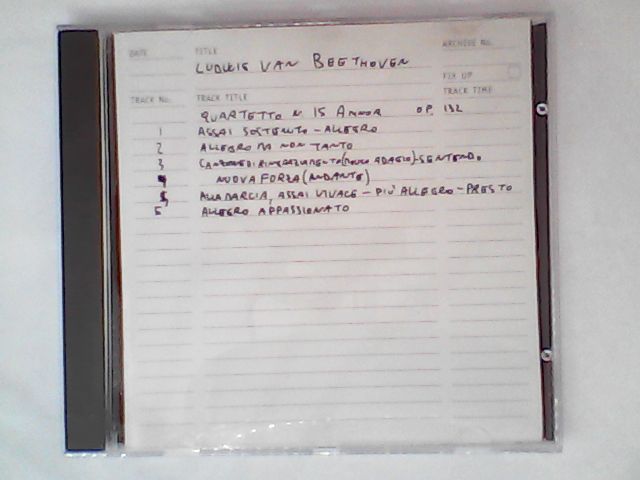 DATE TITLE ARCHIVE No.
LUDWIG VAN BEETHOVEN
FIX UP
TRACK No. TRACK TITLE TRACK TIME
QUARTETTO N 15 A MINOR OP. 132
1 ASSAI SOSTENUTO - ALLEGRO
2 ALLEGRO MA NON TANTO
3 CANZONE DI RINGRAZIAMENTO (MOLTO ADAGIO) - SENTENDO
NUOVA FORZA (ANDANTE)
ALLA MARCIA, ASSAI VIVACE - PIÙ ALLEGRO - PRESTO
5 ALLEGRO APPASSIONATO